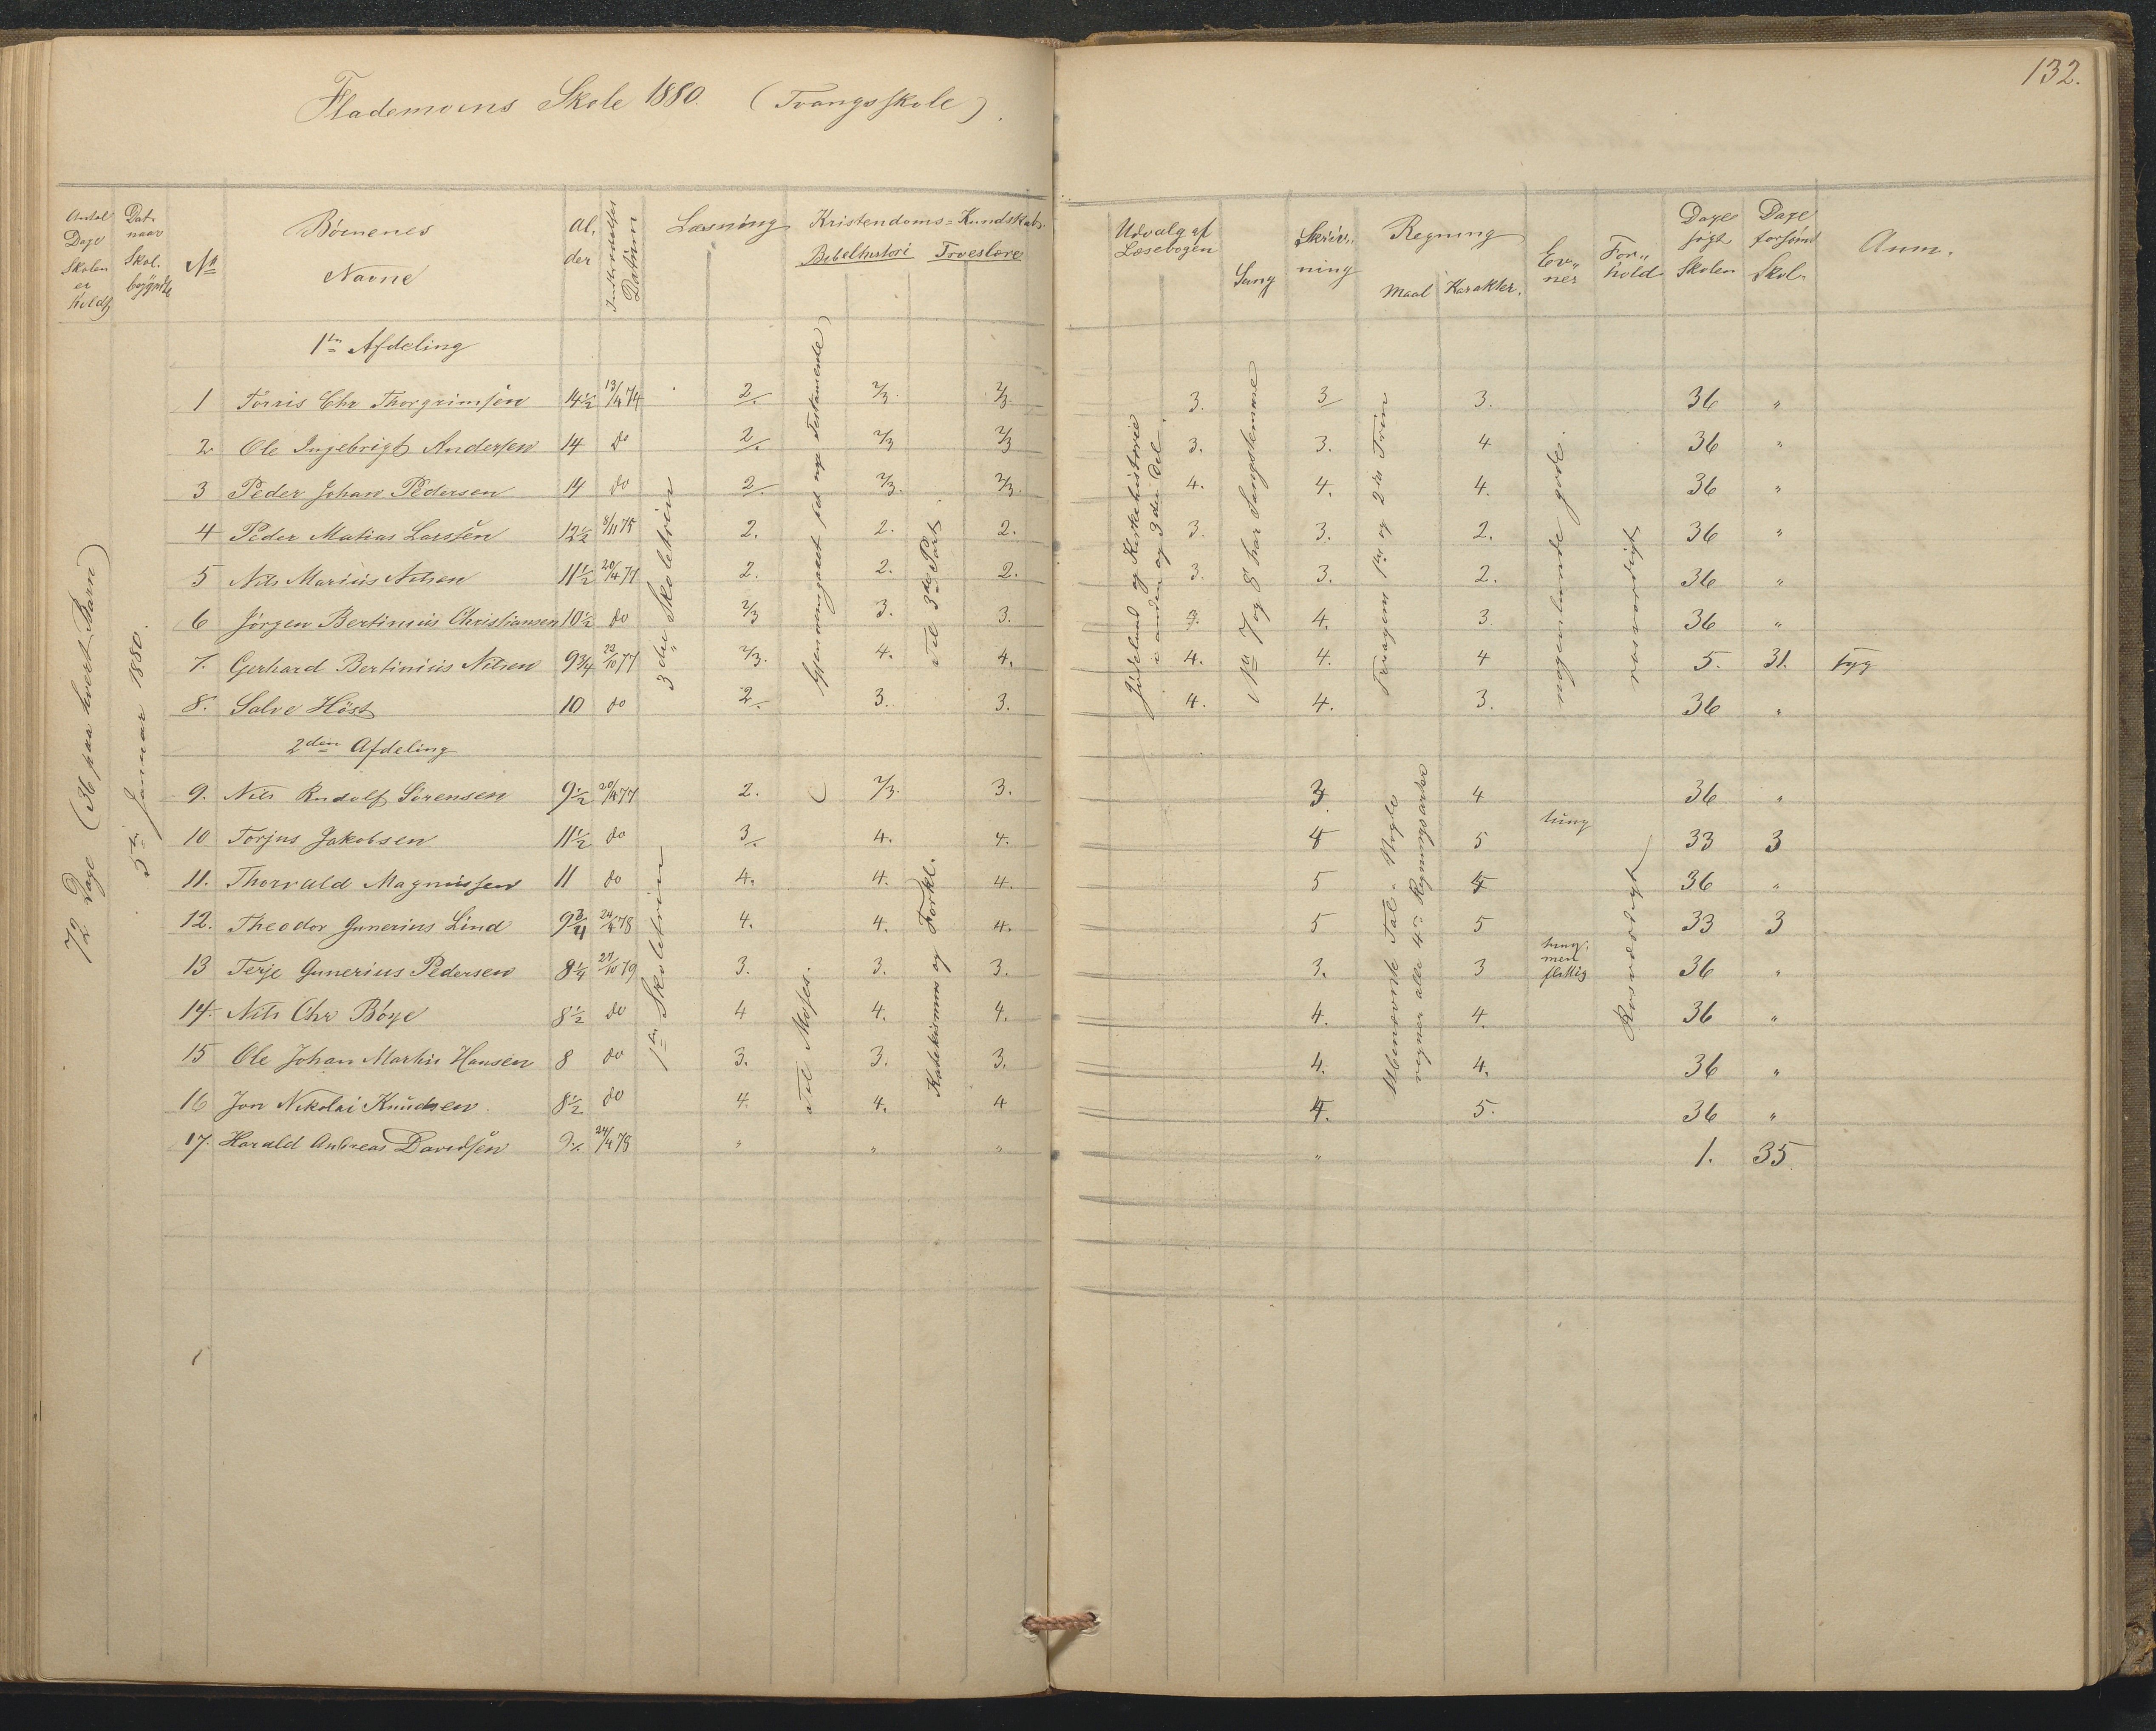 132.
Flademoens Skole 1880. (Tvangsskole).
Antal Dage Skolen er holdt
Dat. naar Skol. begyndte
No
Børnenes Navne
Al, der
Indtrædelses Datum
Læsning
Kristendoms=Kundskab.
Bibelhistori Troeslære
Udvalg af Læsebogen
Sang
Skriv,, ning
Regning
Maal Karakter.
Ev,, ner
For,, hold
Dage søgt Skolen
Dage forsømt Skol.
Anm.
72 Dage (36 paa hvert Barn)
5te Januar 1880.
1te Afdeling
3die Skoletrin
Gjennemgaaet det nye Testamente)
Til 3die Part.
Jødeland og Kirkehistorie
i anden og 3die Del.
No 7 og 8 har Sangstemme
1ste og 2det Trin
nogenlunde gode.
rosværdigt
1 Torris Chr Thorgrimsen 14½ 13/4 74 2/. 2/3. 2/3. 3. 3/ 3. 36 "
2 Ole Ingebrigt Andersen 14 do 2/. 2/3 2/3 3. 3. 4 36 "
3 Peder Johan Pedersen 14 do 2/. 2/3. 2/3. 4. 4. 4. 36 "
4 Peder Matias Larssen 12½ 8/11 75 2. 2. 2. 3. 3. 2. 36 "
5 Nils Marius Nilsen 11½ 20/4 77 2. 2. 2. 3. 3. 2. 36 "
6 Jørgen Bertinius Christiansen 10½ do 2/3 3. 3. 3. 4. 3 36 "
7. Gerhard Bertinius Nilsen 9¾ 23/10 77 2/3. 4. 4. 4. 4. 4 5. 31. syg
8. Salve Høst 10 do 2/. 3. 3. 4. 4. 3. 36 "
2den Afdeling
1te Skoletrin
Til Moses.
Katekismus og Forkl.
Ubenævnte Tal.
regner alle 4re Regningsarter
Rosværdigt
9. Nils Rudolf Sørensen 9½ 20/4 77 2. 2/3. 3. 3. 4 36 "
10 Torjus Jakobsen 11½ do 3/. 4. 4. 4 5 tung 33 3
11. Thorvald Magnussen 11 do 4. 4. 4. 5 4 36 "
12. Theodor Gunerius Lind 9¾ 24/4 78 4. 4. 4. 5 5 33 3
13 Terje Gunerius Pedersen 8¼ 27/10 79 3. 3. 3. 3. 3 tung, men flittig 36 "
14. Nils Chr Bøye 8½ do 4 4. 4. 4. 4. 36 "
15 Ole Johan Martin Hansen 8 do 3. 3. 3. 4. 4. 36 "
16 Jon Nikolai Knudsen 8½ do 4. 4. 4 4. 5. 36 "
17. Harald Andreas Davidsen 24/4 78 " " " " 1. 35